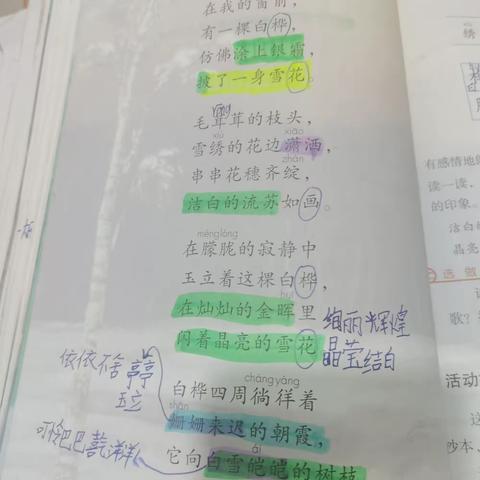 在我的窗前，
有一棵白桦，
仿佛涂上银霜，
披了一身雪花。
róng
毛茸茸的枝头，
xiù xiāo
雪绣的花边潇洒，
zhàn
串串花穗齐绽，
洁白的流苏如画。
méng lóng
在朦胧的寂静中
玉立着这棵白桦，
huī
在灿灿的金晖里
闪着晶亮的雪花
绚丽辉煌
晶莹结白
依依不舍 亭亭
玉立
cháng yáng
白桦四周徜徉着
shān
姗姗来迟的朝霞，
ái
它向白雪皑皑的树枝
绣
有感情地
读一读，
的印象。
洁白
晶亮
选做
歌？
活动
这
抄本，